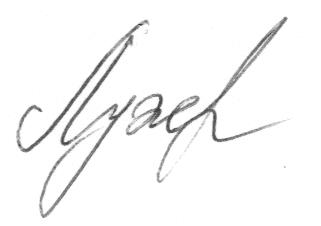 Лузер